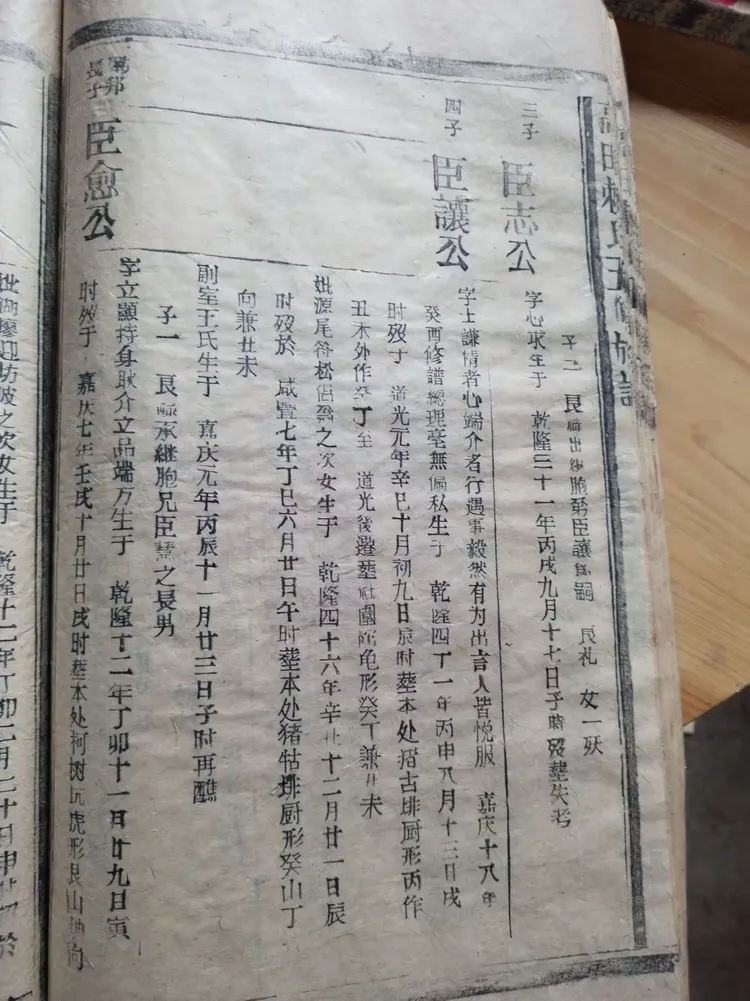 高田賴氏五修族譜
子二 良 出継胞弟臣讓爲嗣 良礼 女一殀
三子
臣志公
字心求生于 乾隆三十一年丙戌九月十七日子時殁塟失考
四子
臣讓公
字士謙情者心端介者行遇事毅然有为出言人皆悦服 嘉庆十八年
癸酉修譜總理毫無偏私生于 乾隆四丁一年丙申八月十三日戌
时殁于 道光元年辛巳十月初九日辰时塟本处 古排厨形丙作
丑未外作癸丁至 道光後遷塟 圍 龟形癸丁兼丑未
妣源尾 松侣翁之次女生于 乾隆四十六年辛丑十二月廿一日辰
时殁於 咸豐七年丁巳六月廿日午时塟本处猪牯排厨形癸山丁
向兼丑未
副室王氏生于 嘉庆元年丙辰十一月廿三日子时再醮
子一 良 承継胞兄臣 之長男
邦
長子
臣愈公
字立顯持身耿介立品端方生于 乾隆十二年丁卯十一日廿九日寅
时殁于 嘉庆七年壬戌十月廿日戌时塟本处柯树坑虎形艮山坤向
妣 廖迎坊 之次女生于 乾隆十二年丁卯二月二十日申 於